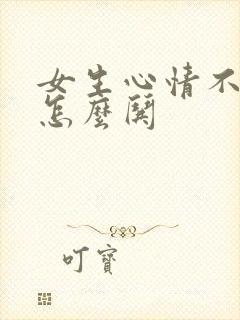 女生心情不
怎麼鬨
叮寶